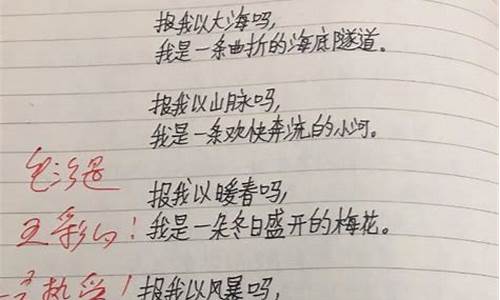 报我以大海吗，
我是一条曲折的海底隧道。
报我以山脉吗，
我是一条欢快奔流的小河。
报我以暖春吗，
我是一朵冬日盛开的梅花。
报我以风暴吗，